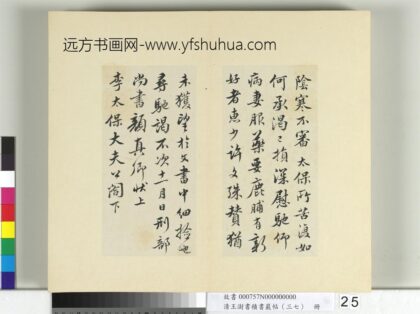 远方书画网-www.yfshuhua.com
陰寒不審太保所苦何如
何承渴已損深慰馳仰
病妻服藥要鹿脯有新
好者惠少許文殊贊猶
未獲望於文書中細撿也
尋馳謁不次十一月日刑部
尚書顏真卿狀上
李太保大夫公閤下
故書 000757N000000000
清王澍書積書巖帖（三七） 冊
25